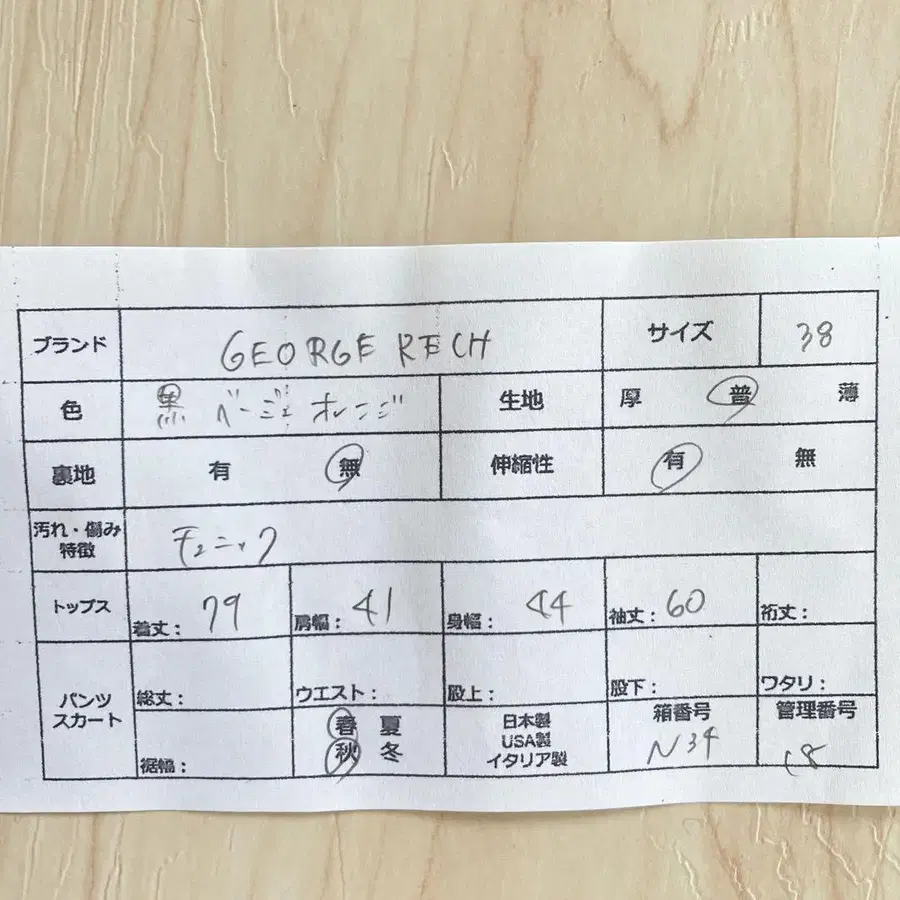 ブランド GEORGE RECH サイズ 38
色 黒 ベージュ オレンジ 生地 厚 普 薄
裏地 有 無 伸縮性 有 無
汚れ・傷み
特徴 チュニック
トップス 着丈： 79 肩幅： 41 身幅： 44 袖丈： 60 裄丈：
パンツ
スカート 総丈： ウエスト： 股上： 股下： ワタリ：
裾幅： 春 夏
秋 冬
日本製
USA製
イタリア製
箱番号
N34
管理番号
18